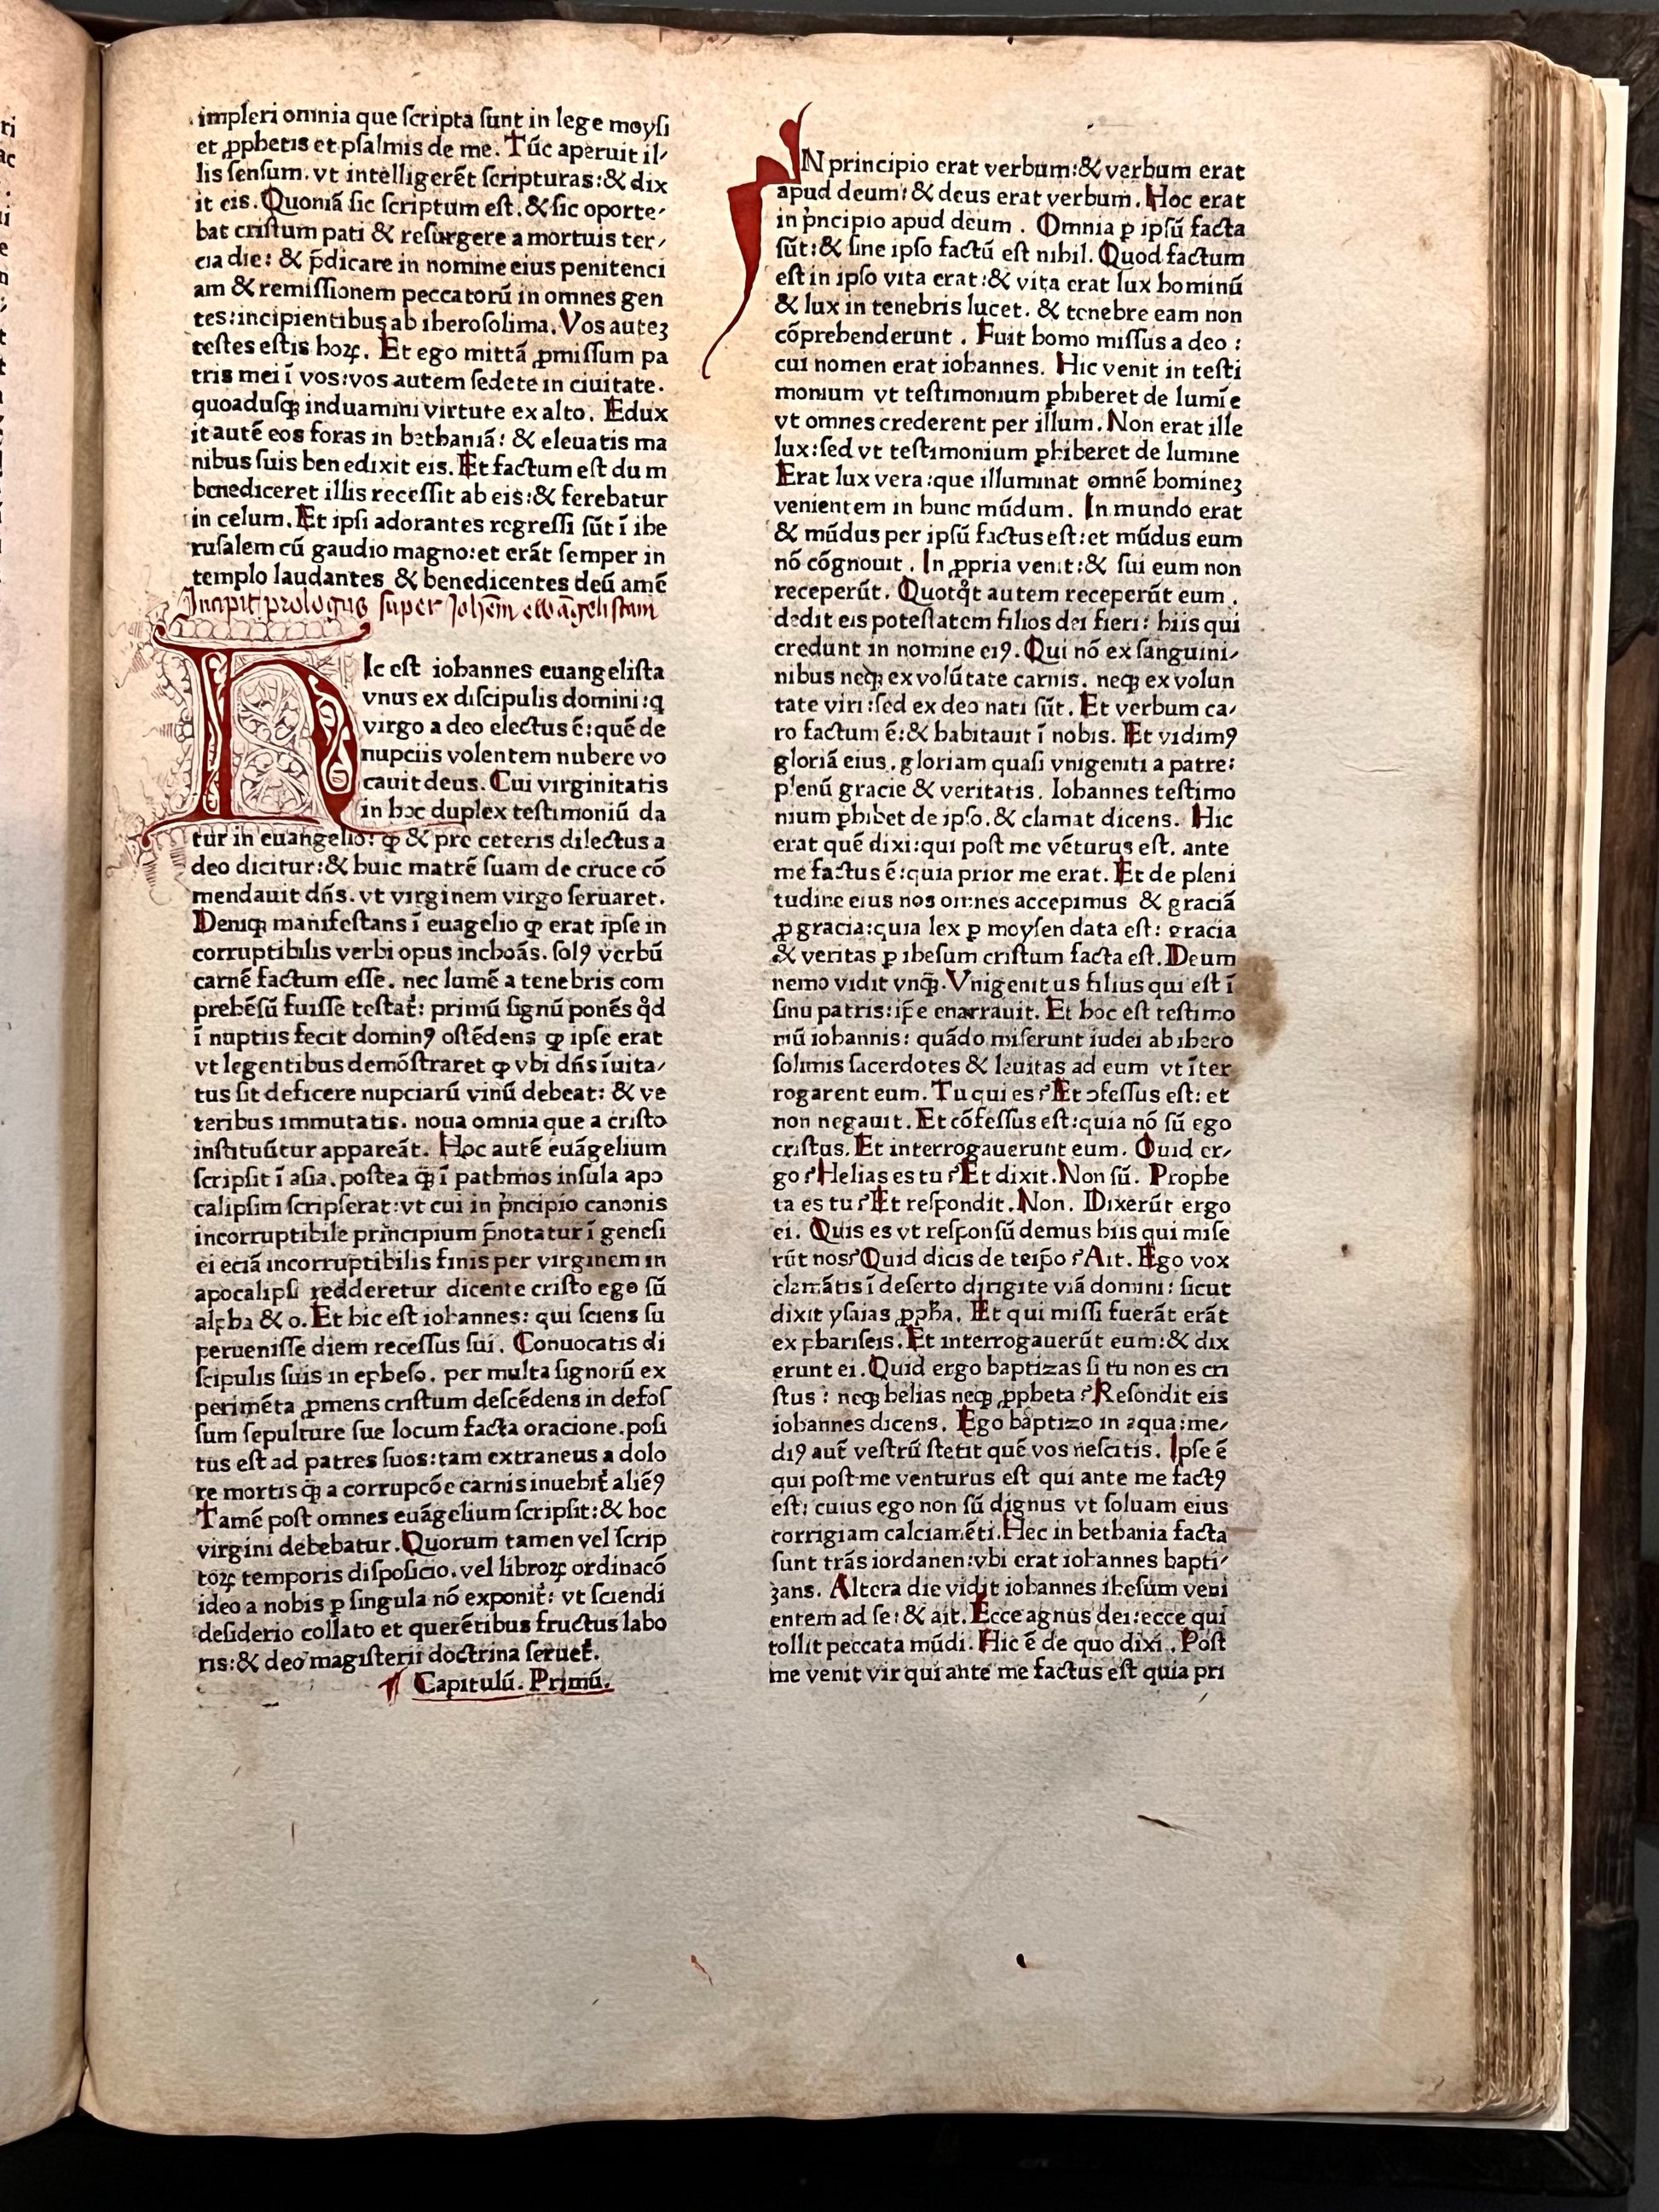 impleri omnia que scripta sunt in lege moysi
et ꝓphetis et psalmis de me. Tūc aperuit il⸗
lis sensum. vt intelligerēt scripturas: & dix
it eis. Quoniā sic scriptum est. & sic oporte⸗
bat cristum pati & resurgere a mortuis ter⸗
cia die: & p̄dicare in nomine eius penitenci
am & remissionem peccatorū in omnes gen
tes: incipientibus ab iherosolima. Vos auteꝫ
testes estis hoꝝ. Et ego mittā ꝓmissum pa
tris mei ī vos: vos autem sedete in ciuitate.
quoadusqꝫ induamini virtute ex alto. Edux
it autē eos foras in bethaniā: & eleuatis ma
nibus suis benedixit eis. Et factum est dum
benediceret illis recessit ab eis: & ferebatur
in celum. Et ipsi adorantes regressi sūt ī ihe
rusalem cū gaudio magno: et erāt semper in
templo laudantes & benedicentes deū amē
Incipit prologus super Johēm ewāgelistam
HIc est iohannes euangelista
vnus ex discipulis domini: q
virgo a deo electus ē: quē de
nupciis volentem nubere vo
cauit deus. Cui virginitatis
in hoc duplex testimoniū da
tur in euangelio: ꝙ & pre ceteris dilectus a
deo dicitur: & huic matrē suam de cruce cō
mendauit dn̄s. vt virginem virgo seruaret.
Deniqꝫ manifestans ī euagelio ꝙ erat ipse in
corruptibilis verbi opus inchoās. solꝰ verbū
carnē factum esse. nec lumē a tenebris com
prehēsū fuisse testat̄: primū signū ponēs qd̄
ī nuptiis fecit dominꝰ ostēdens ꝙ ipse erat
vt legentibus demōstraret ꝙ vbi dn̄s īuita⸗
tus sit deficere nupciarū vinū debeat: & ve
teribus immutatis. noua omnia que a cristo
instituūtur appareāt. Hoc autē euāgelium
scripsit ī asia. postea ꝙ̄ ī pathmos insula apo
calipsim scripserat: vt cui in p̄ncipio canonis
incorruptibile principium p̄notatur ī genesi
ei eciā incorruptibilis finis per virginem in
apocalipsi redderetur dicente cristo ego sū
alpha & o. Et hic est iohannes: qui sciens su
peruenisse diem recessus sui. Conuocatis di
scipulis suis in epheso. per multa signorū ex
perimēta ꝓmens cristum descēdens in defos
sum sepulture sue locum facta oracione. posi
tus est ad patres suos: tam extraneus a dolo
re mortis ꝙ̄ a corrupcōe carnis inuehit̄ aliēꝰ
Tamē post omnes euāgelium scripsit: & hoc
virgini debebatur. Quorum tamen vel scrip
toꝝ temporis disposicio. vel libroꝝ ordinacō
ideo a nobis ꝑ singula nō exponit̄: vt sciendi
desiderio collato et querētibus fructus labo
ris: & deo magisterii doctrina seruet̄.
¶ Capitulū. Primū.
IN principio erat verbum: & verbum erat
apud deum: & deus erat verbum. Hoc erat
in p̄ncipio apud deum. Omnia ꝑ ipsū facta
sūt: & sine ipso factū est nihil. Quod factum
est in ipso vita erat: & vita erat lux hominū
& lux in tenebris lucet. & tenebre eam non
cōprehenderunt. Fuit homo missus a deo:
cui nomen erat iohannes. Hic venit in testi
monium vt testimonium ꝑhiberet de lumīe
vt omnes crederent per illum. Non erat ille
lux: sed vt testimonium ꝑhiberet de lumine
Erat lux vera: que illuminat omnē homineꝫ
venientem in hunc mūdum. In mundo erat
& mūdus per ipsū factus est: et mūdus eum
nō cōgnouit. In ꝓpria venit: & sui eum non
receperūt. Quotqt̄ autem receperūt eum.
dedit eis potestatem filios dei fieri: hiis qui
credunt in nomine eiꝰ. Qui nō ex sanguini⸗
nibus neqꝫ ex volūtate carnis. neqꝫ ex volun
tate viri: sed ex deo nati sūt. Et verbum ca⸗
ro factum ē: & habitauit ī nobis. Et vidimꝰ
gloriā eius. gloriam quasi vnigeniti a patre:
plenū gracie & veritatis. Iohannes testimo
nium ꝑhibet de ipso. & clamat dicens. Hic
erat quē dixi: qui post me vēturus est. ante
me factus ē: quia prior me erat. Et de pleni
tudine eius nos omnes accepimus & graciā
ꝓ gracia: quia lex ꝑ moysen data est: gracia
& veritas ꝑ ihesum cristum facta est. Deum
nemo vidit vnqꝫ. Vnigenitus filius qui est ī
sinu patris: ip̄e enarrauit. Et hoc est testimo
niū iohannis: quādo miserunt iudei ab ihero
solimis sacerdotes & leuitas ad eum vt īter
rogarent eum. Tu qui es? Et ꝯfessus est: et
non negauit. Et cōfessus est: quia nō sū ego
cristus. Et interrogauerunt eum. Quid er⸗
go? Helias es tu? Et dixit. Non sū. Prophe
ta es tu? Et respondit. Non. Dixerūt ergo
ei. Quis es vt responsū demus hiis qui mise
rūt nos? Quid dicis de teip̄o? Ait. Ego vox
clamātis ī deserto dirigite viā domini: sicut
dixit ysaias ꝓpha. Et qui missi fuerāt erāt
ex phariseis. Et interrogauerūt eum: & dix
erunt ei. Quid ergo baptizas si tu non es cri
stus: neqꝫ helias neqꝫ ꝓpheta? Resondit eis
iohannes dicens. Ego baptizo in aqua: me⸗
diꝰ aut̄ vestrū stetit quē vos nescitis. Ipse ē
qui post me venturus est qui ante me factꝰ
est: cuius ego non sū dignus vt soluam eius
corrigiam calciamēti. Hec in bethania facta
sunt trās iordanen: vbi erat iohannes bapti⸗
zans. Altera die vidit iohannes ihesum veni
entem ad se: & ait. Ecce agnus dei: ecce qui
tollit peccata mūdi. Hic ē de quo dixi. Post
me venit vir qui ante me factus est quia pri